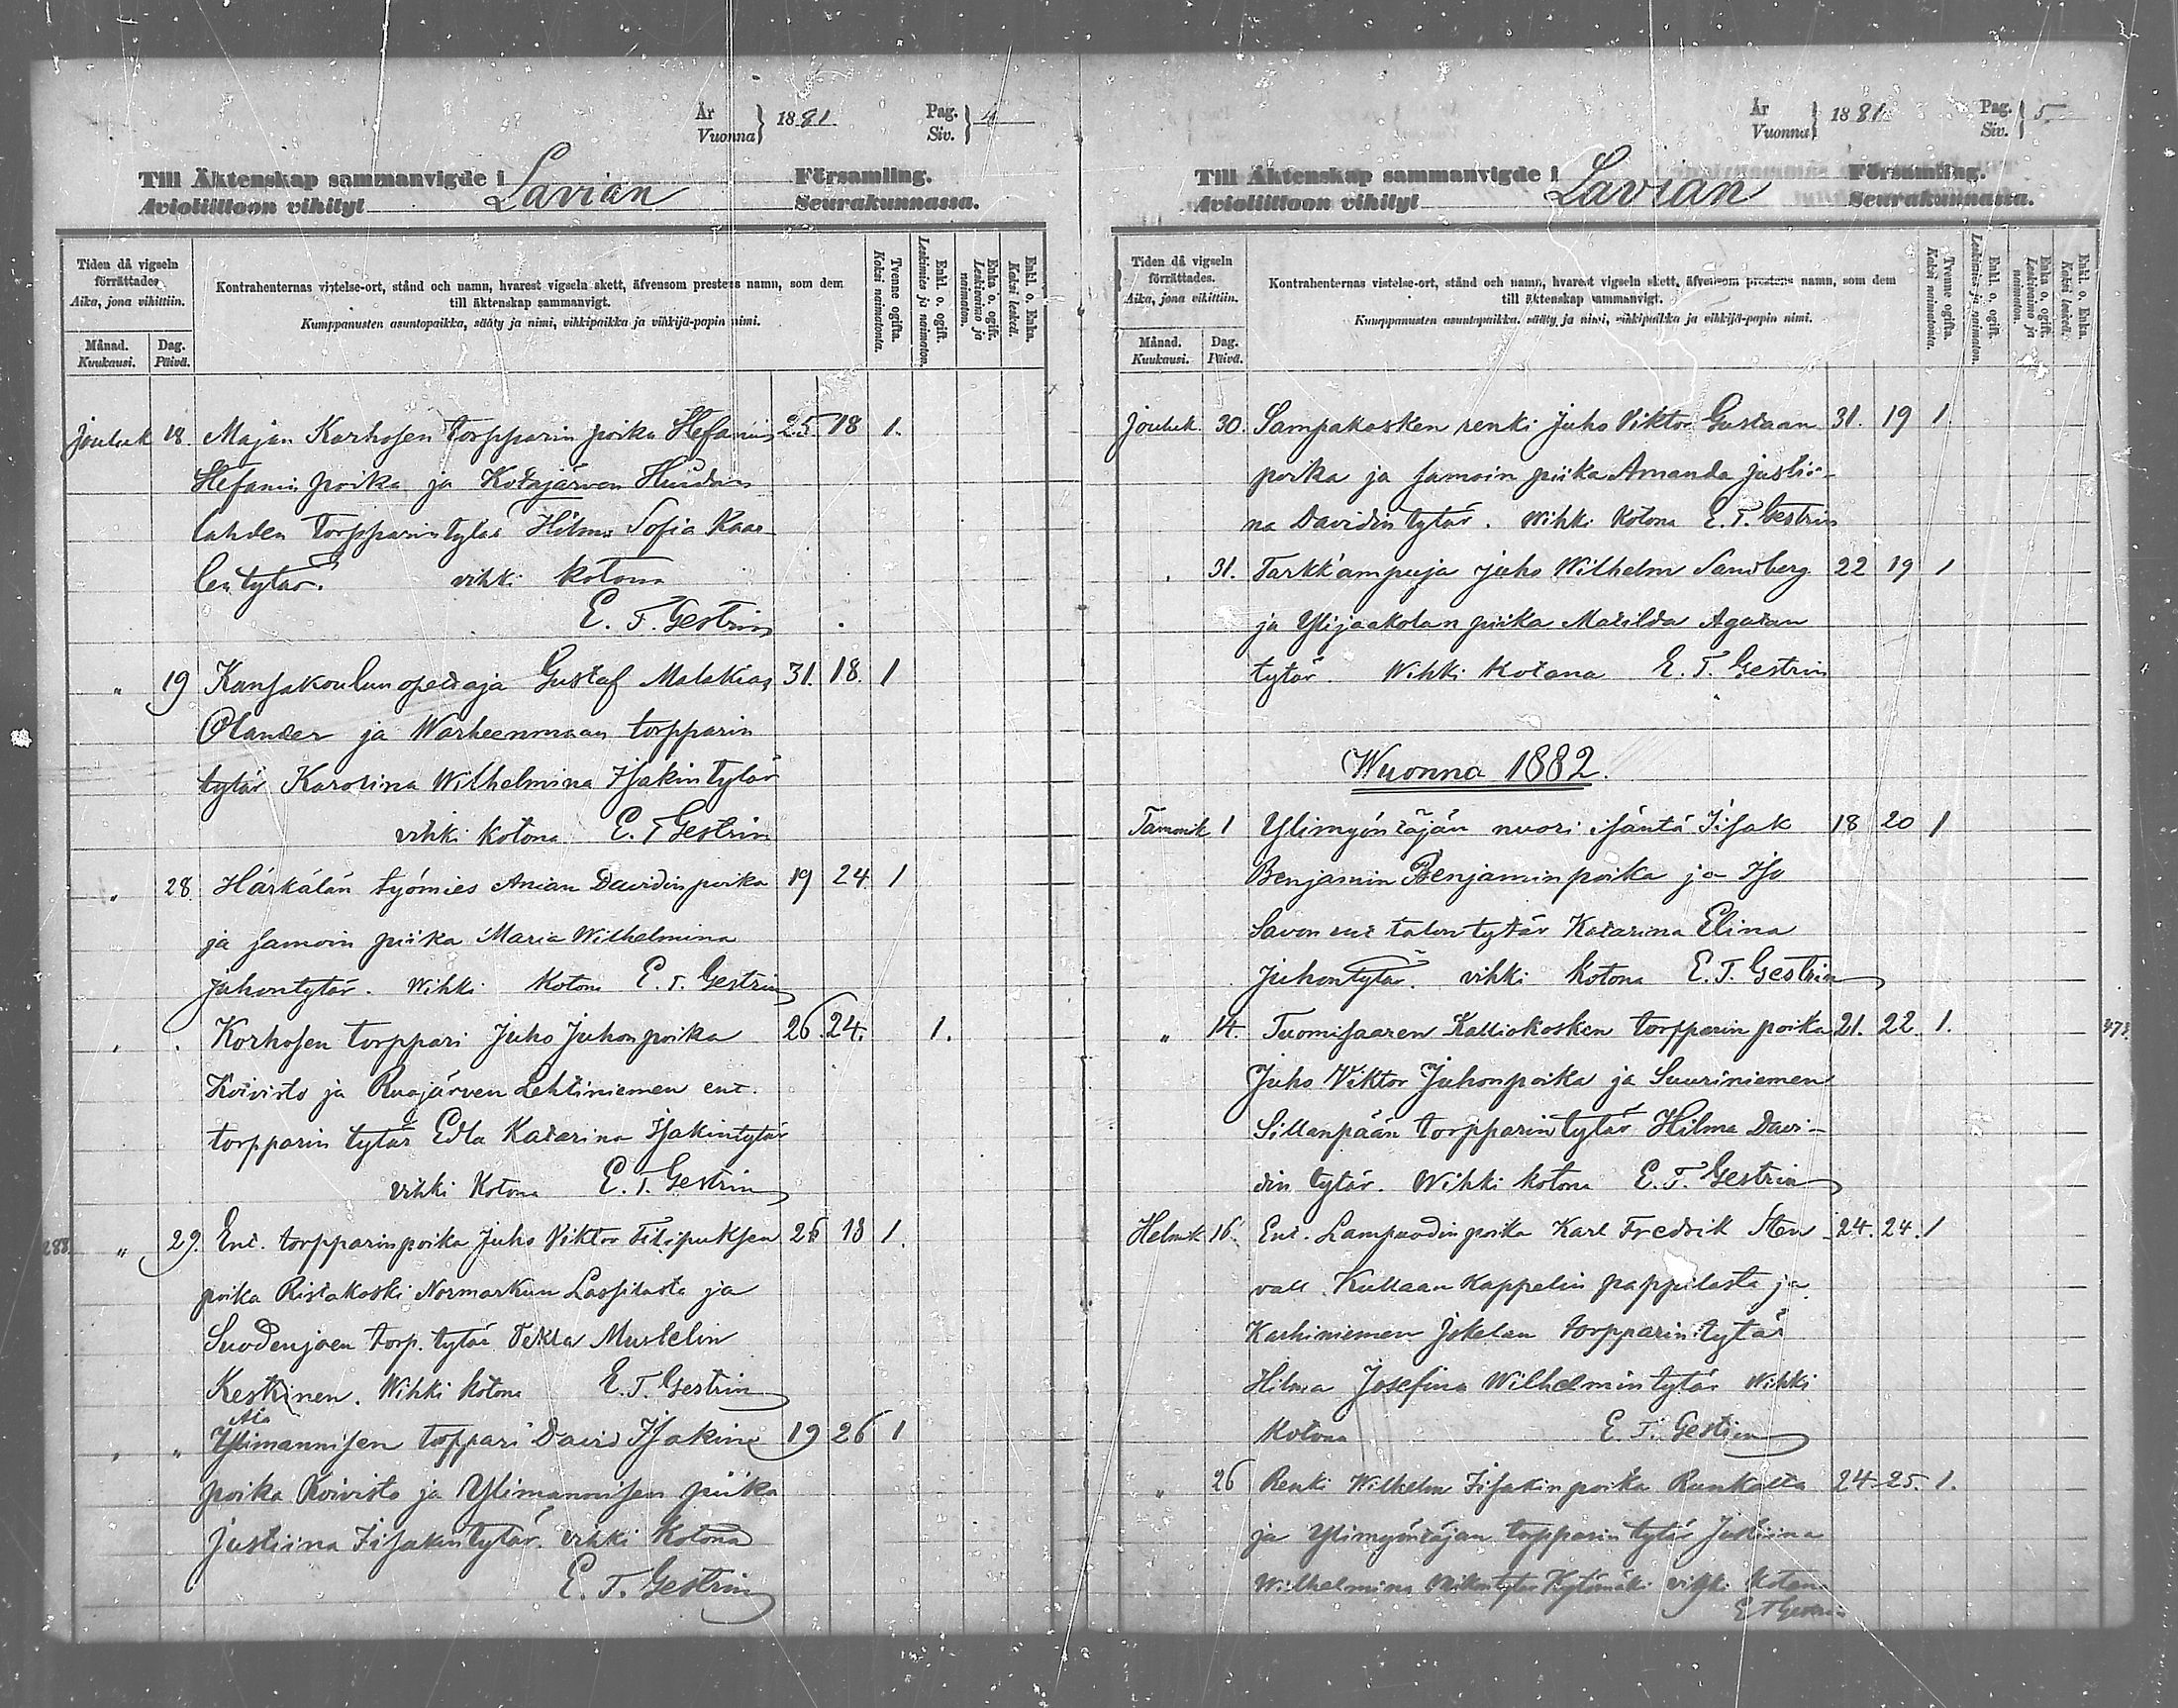 År
Vuonna } 1881. Pag.
Siv. } 4
Till Äktenskap sammanvigde i Lavian Församling.
Avioliittoon vihityt Seurakunnassa.
Tiden då vigseln förrättades.
Aika, jona vihittiin.
Månad. Kuukausi.
Dag. Päivä.
Kontrahenternas vistelse-ort, stånd och namn, hvarest vigseln skett, äfvensom prestens namn, som dem
till äktenskap sammanvigt.
Kumppanusten asuntopaikka, sääty ja nimi, vihkipaikka ja vihkijä-papin nimi.
Tvenne ogifta. Kaksi naimatonta.
Enkl. o. ogift. Leskimies ja naimaton.
Enka o. ogift. Leskivaimo ja naimaton.
Enkl. o. Enka. Kaksi leskeä.
Jouluk 18. Majan Korhosen torpparin poika Stefanus 25. 18 1.
Stefanin poika ja Kotajärven
lahden torpparin tytär Hilma Sofia Kaar
len tytär. vihki kotona
E. T. Gestrin
" 19 Kansakoulun opettaja Gustaf Malakias 31. 18. 1
Olander ja Warheenmaan torpparin
tytär Karolina Wilhelmina Isakin tytär
vihki kotona E. T. Gestrin
" 28. Härkälän työmies Anian Davidin poika 19 24. 1
ja samoin piika Maria Wilhelmina
Juhontytär. Wihki kotona E. T. Gestrin
" " Korhosen torppari Juho Juhonpoika 26. 24. 1.
Koivisto ja Ruojärven Lehtiniemen ent.
torpparin tytär Edla Katarina Isakintytär
vihki kotona E. T. Gestrin
288. " 29. Ent. torpparinpoika Juho Viktor Filipuksen 26 18 1.
poika Ristakoski Normarkun Lassilasta ja
Suodenjoen torp. tytär Tekla Mustelin
Keskinen. Wihki kotona E. T. Gestrin
Ala
" " Ylimannisen torppari David Isakin 19 26 1
poika Koivisto ja Ylimannisen piika
Justiina Iisakintytär. vihki kotona
E. T. Gestrin
År
Vuonna } 1881. Pag.
Siv. } 5.
Till Äktenskap sammanvigde i Lavian Församling.
Avioliittoon vihityt Seurakunnassa.
Tiden då vigseln förrättades.
Aika, jona vihittiin.
Månad. Kuukausi.
Dag. Päivä.
Kontrahenternas vistelse-ort, stånd och namn, hvarest vigseln skett, äfvensom prestens namn, som dem
till äktenskap sammanvigt.
Kumppanusten asuntopaikka, sääty ja nimi, vihkipaikka ja vihkijä-papin nimi.
Tvenne ogifta. Kaksi naimatonta.
Enkl. o. ogift. Leskimies ja naimaton.
Enka o. ogift. Leskivaimo ja naimaton.
Enkl. o. Enka. Kaksi leskeä.
Jouluk. 30. Sampakosken renki Juho Viktor Gustaan 31. 19 1
poika ja samoin piika Amanda Justii-
na Davidin tytär. Wihki kotona E. T. Gestrin
" 31. Tarkk'ampuja Juho Wilhelm Sandberg 22 19 1
ja Ylijaakolan piika Matilda Agatan
tytär. Wihki kotana E. T. Gestrin
Wuonna 1882.
Tammik 1 Ylimyöntäjän nuori isäntä Iisak 18 20 1
Benjamin Benjamin poika ja Iso
Savon ent talon tytär Katarina Elina
Juhontytär. vihki kotona E. T. Gestrin
" 14. Tuomisaaren Kalliokosken torpparin poika 21. 22. 1. 473.
Juho Viktor Juhonpoika ja Suuriniemen
Sillanpään torpparin tytär Hilma Davi-
din tytär. Wihki kotona E. T. Gestrin
Helmik 16. Ent. Lampuodin poika Karl Fredrik Sten 24. 24. 1
vall Kullaan kappelin pappilasta ja
Karhiniemen Jokelan torpparin tytär
Hilma Josefina Wilhelmin tytär Wihki
kotona E. T. Gestrin
" 26 Renki Wilhelm Iisakin poika Runkalta 24. 25. 1.
ja Ylimyöntäjän torpparin tytär Justiina
Wilhelmina vihki kotona
E T Gestrin